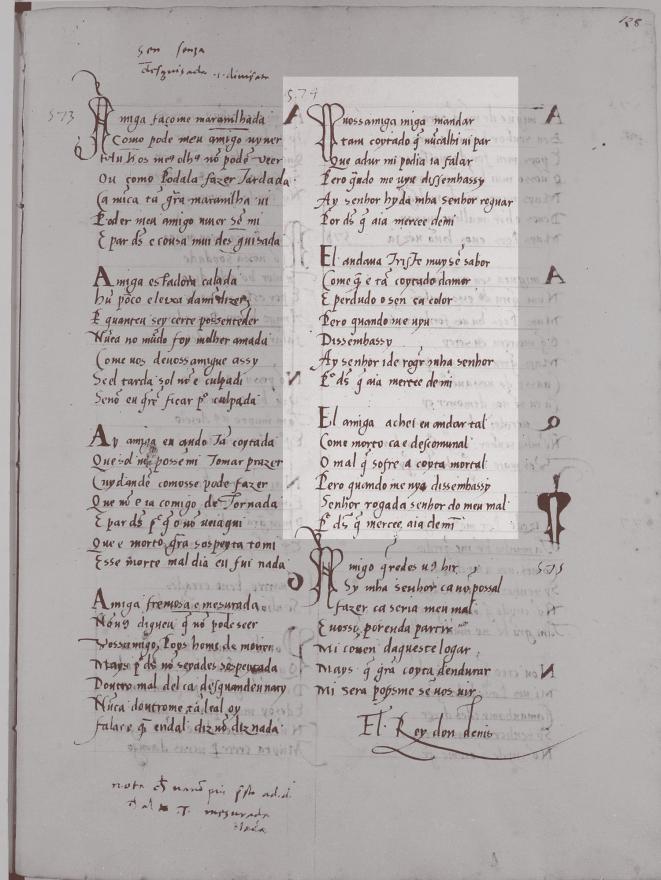 128
sen sonja
desguisada
573
Amiga façome marauilhada
Como pode meu amigo uyuer
Hu hos me9 olh9 nõ podẽ ueer
Ou como Podala fazer Tardada
Ca nũca tã grã marauilha ui
Poder meu amigo uiuer sẽ mi
E par ds e cousa mui des guisada
Amiga estadora calada
Hũ poco e leixa dami dizer
E quanteu sey certe possentẽder
Nũca no mũdo foy molher amada
Come uos deuossamigue assy
Seel tarda sol nõ e culpadi
Senõ eu q̃re ficar p9 culpada
Ay amiga eu ando Tã coytada
Que sol nõ posse mi Tomar prazer
Cuydandẽ comosse pode fazer
Que nõ e ia comigo de Tornada
E par ds p9 q̃ o nõ ueiaqui
Que e morto grã sospeyta tomi
Esse morte mal dia eu fui nada
Amiga fremosa e mesurada
Nõu9 digueu q̃ nõ podeseer
Vossamigo, Poys home de moirer
Mays p9 ds nõ seyades sospeytada
Doutro mal del ca desquandeu nacy
Nũca doutrome tã leal oy
Falar e q̃ẽ endal diz nõ diz nada
nota
mesurada
574
Puossamiga miga mandar
Tam coytado q̃ nũcalhi ui par
Que adur mi podia ia falar
Pero q̃ndo me uyu dissembassy
Ay senhor hyda mha senhor roguar
Por ds q̃ aia mercee demi
El andaua Triste muy sẽ sabor
Come q̃ e tã coytado damor
E perdudo o sen ca color
Pero quando me uyu
Dissembassy
Ay senhor ide rogr mha senhor
P9 ds q̃ aia mercee demi
El amiga achei eu andar tal
Come morto ca e descomunal
O mal q̃ sofre a coyta mortal
Pero quando me uyu dissembassy
Senhor rogada senhor do meu mal
P9 ds q̃ mercee aia demi
575
Amigo queredes u9 hir
Sy mha senhor ca nõ possal
fazer ca seria meu mal
E uosso porenda partir
Mi conuen daqueste logar
Mays q̃ grã coyta dendurar
Mi sera poys me sẽ uos uir
El Rey don denis